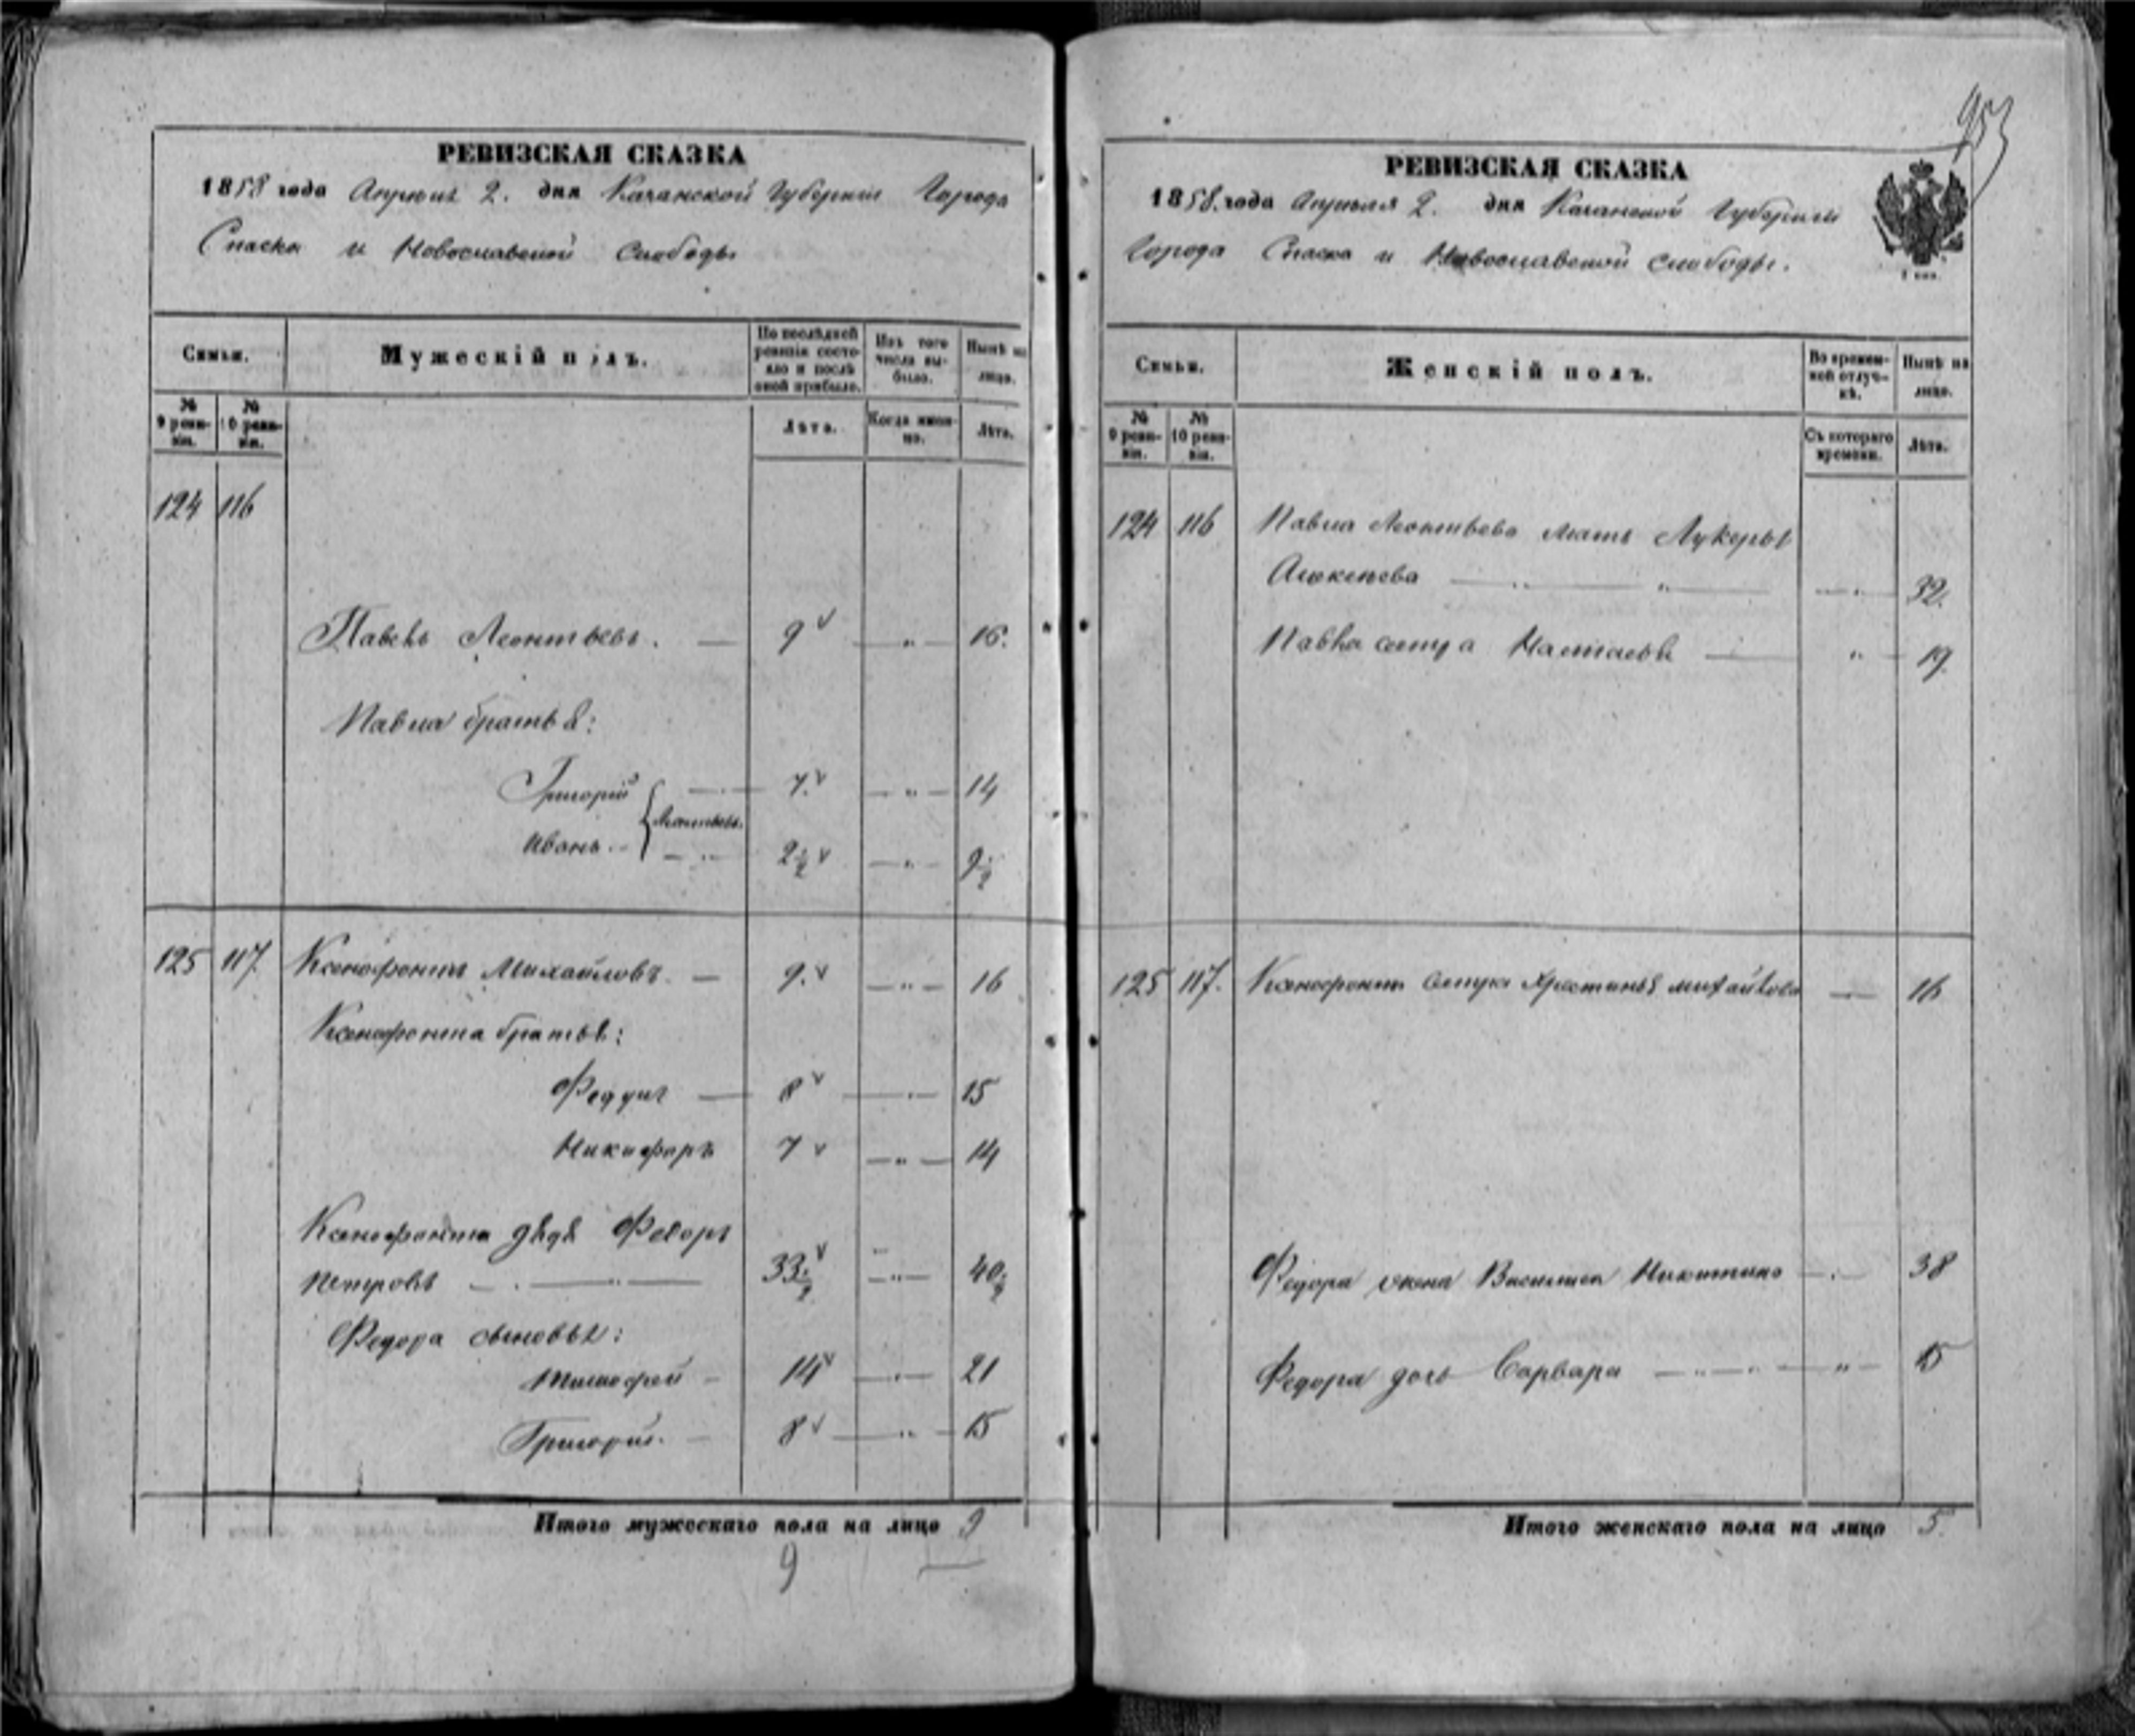 953
РЕВИЗСКАЯ СКАЗКА
1858 года Апреля 2. дня Казанской Губернии Города
Спаска и Новославской Слободы
Семьи.
Мужескій полъ.
По послѣдней ревизіи состояло и послѣ оной прибыло.
Изъ того числа выбыло.
Нынѣ на лицо.
№ 9 ревизіи.
№ 10 ревизіи.
Лѣта.
Когда именно.
Лѣта.
124 116
Павелъ Леонтьевъ. — 9 — " — 16.
Павла братья:
Григорій — 7. — " — 14
Леонтьевы
Иванъ — 2 1/2 — " — 9 1/2
125 117. Ксенофонтъ Михайловъ — 9. — " — 16
Ксенофонта братья:
8 — " — 15
Никифоръ 7 — " — 14
Ксенофонта дядя Федоръ
Петровъ — " — 33 1/2 — " — 40 1/2
Федора сыновья:
Тимофей — 14 — " — 21
Григорій. — 8 — " — 15
Итого мужескаго пола на лицо 9
9
РЕВИЗСКАЯ СКАЗКА
1858. года Апреля 2. дня Казанской Губерніи
Города Спаска и Новославской слободы.
1 коп.
Семьи.
Женскій полъ.
Во временной отлучкѣ.
Нынѣ на лицо.
№ 9 ревизіи.
№ 10 ревизіи.
Съ котораго времени.
Лѣта.
124 116 Павла Леонтьева мать Лукерья
Алексѣева — " — " — 32.
Павла сестра Настасья — " — 19.
125 117. Ксенофонта сестра Христинья Михайлова — 16
Федора жена Василиса Никитина — 38
Федора дочь Варвара — " — " — 15
Итого женскаго пола на лицо 5